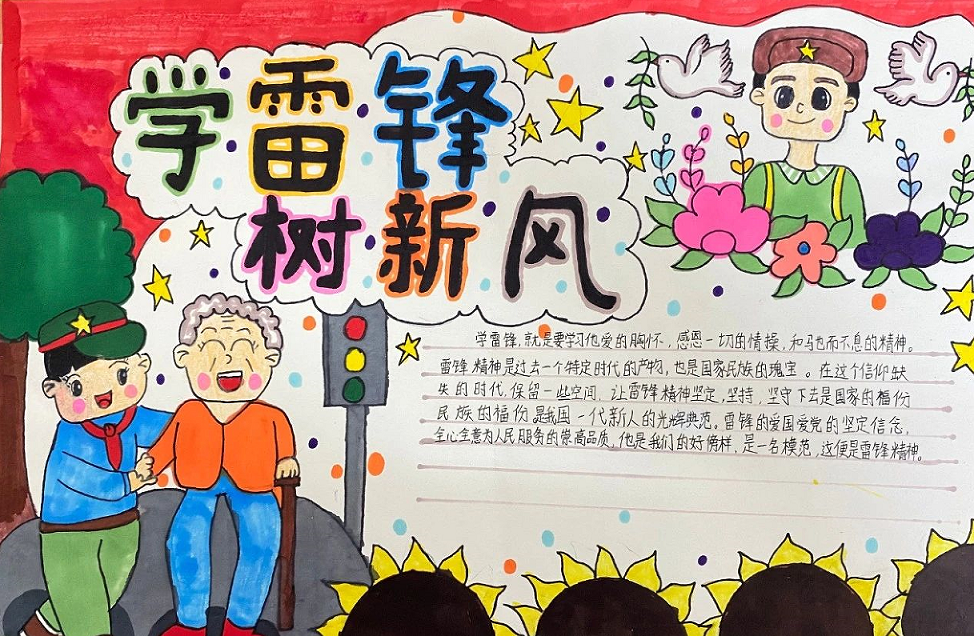 学雷锋
树新风
学雷锋,就是要学习他爱的胸怀,感恩一切的情操,和马也而不息的精神。
雷锋精神是过去一个特定时代的产物,也是国家民族的瑰宝。在这个信仰缺
失的时代,保留一些空间,让雷锋精神坚定,坚持,坚守下去是国家的福份
民族的福份是我国一代新人的光辉典范。雷锋的爱国爱党的坚定信念,
全心全意为人民服务的崇高品质,他是我们的好傍样,是一名模范,这便是雷锋精神。